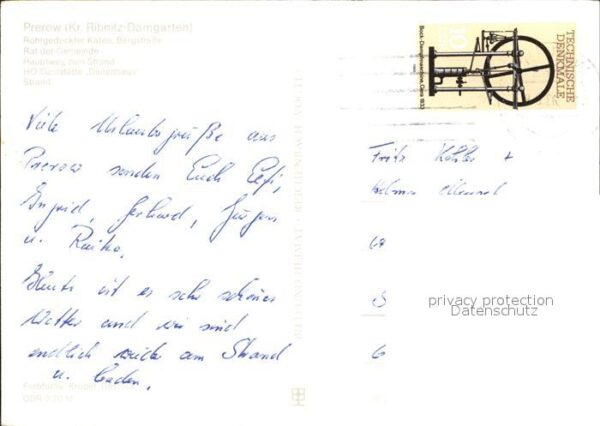 Prerow (Kr. Ribnitz-Damgarten)
Rohrgedeckter Katen, Bergstraße
Rat der Gemeinde
Hauptweg zum Strand
HO-Gaststätte „Dünenhaus"
Strand
10
TECHNISCHE
DENKMALE
Bock-Dampfmaschine, Glena 1833
Viele Urlaubsgrüße aus
Prerow senden Euch
Ingrid, Gerhard, Jürgen
u. Raiko.
Heute ist es sehr schönes
Wetter und wir sind
endlich wieder am Strand
u. baden.
Fritz Köhler +
privacy protection
Datenschutz